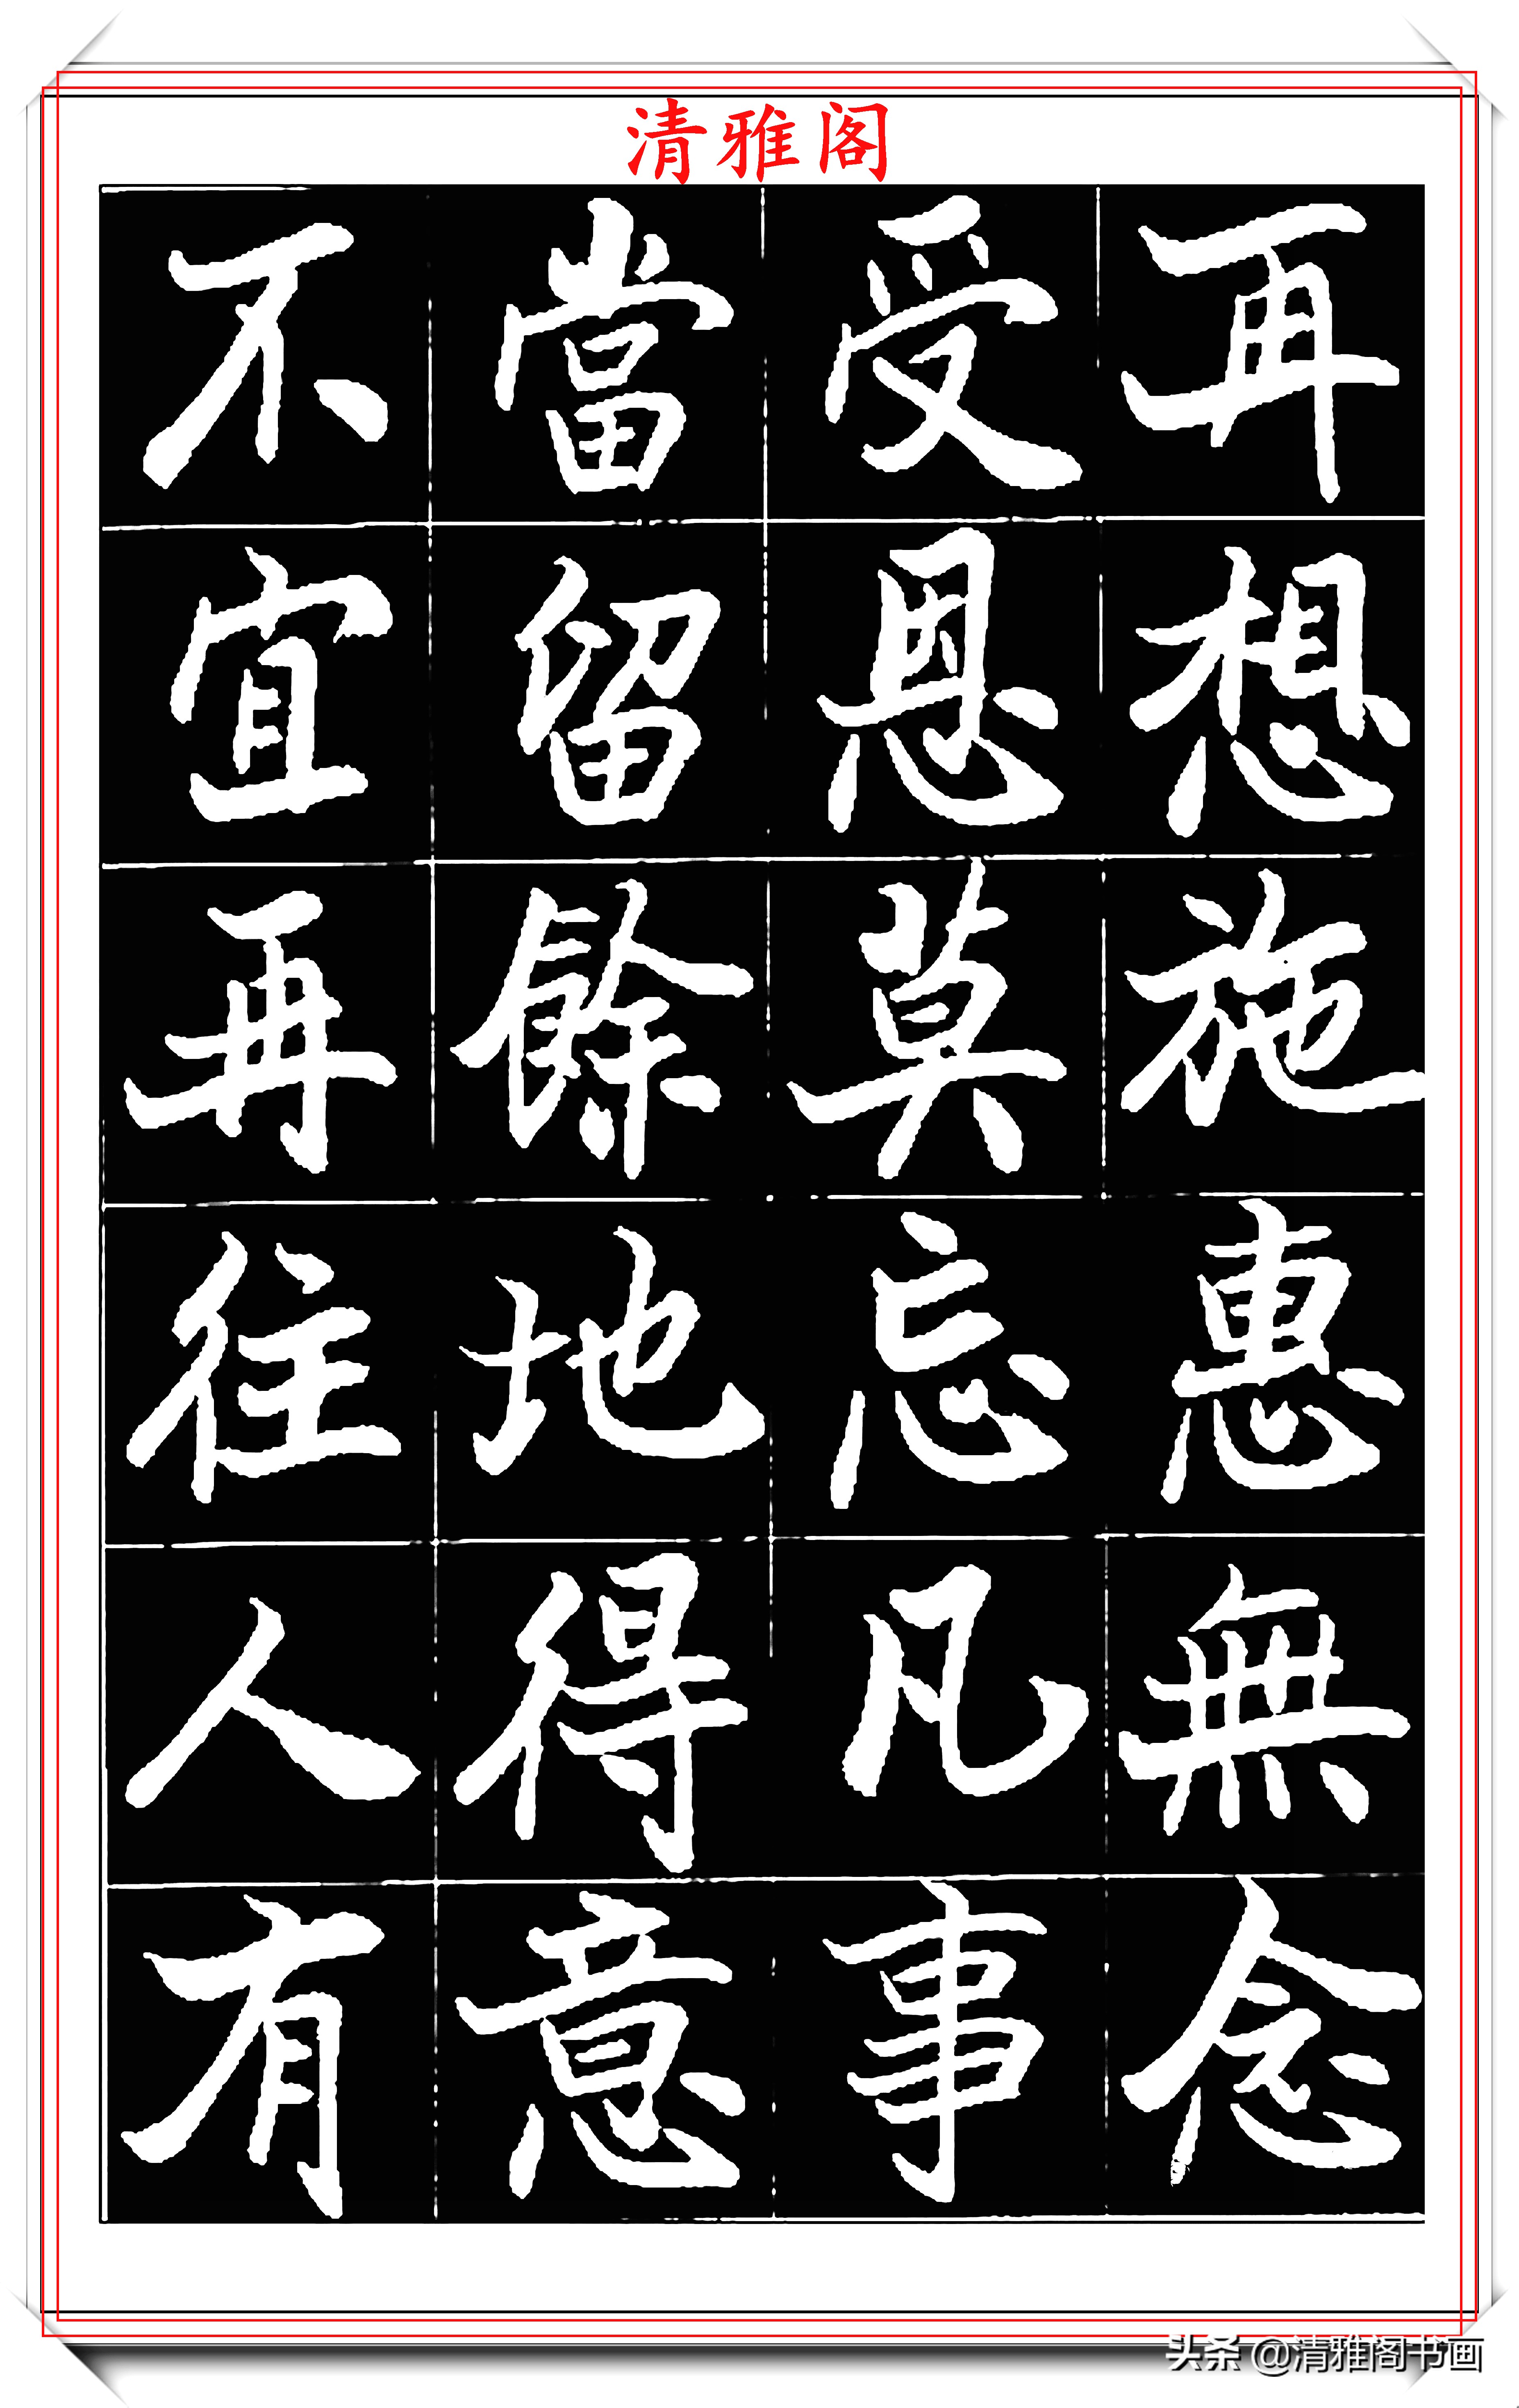 清雅阁
再想施惠無念
受恩莫忘凡事
當留餘地得意
不宜再往人有
头条 @清雅阁书画